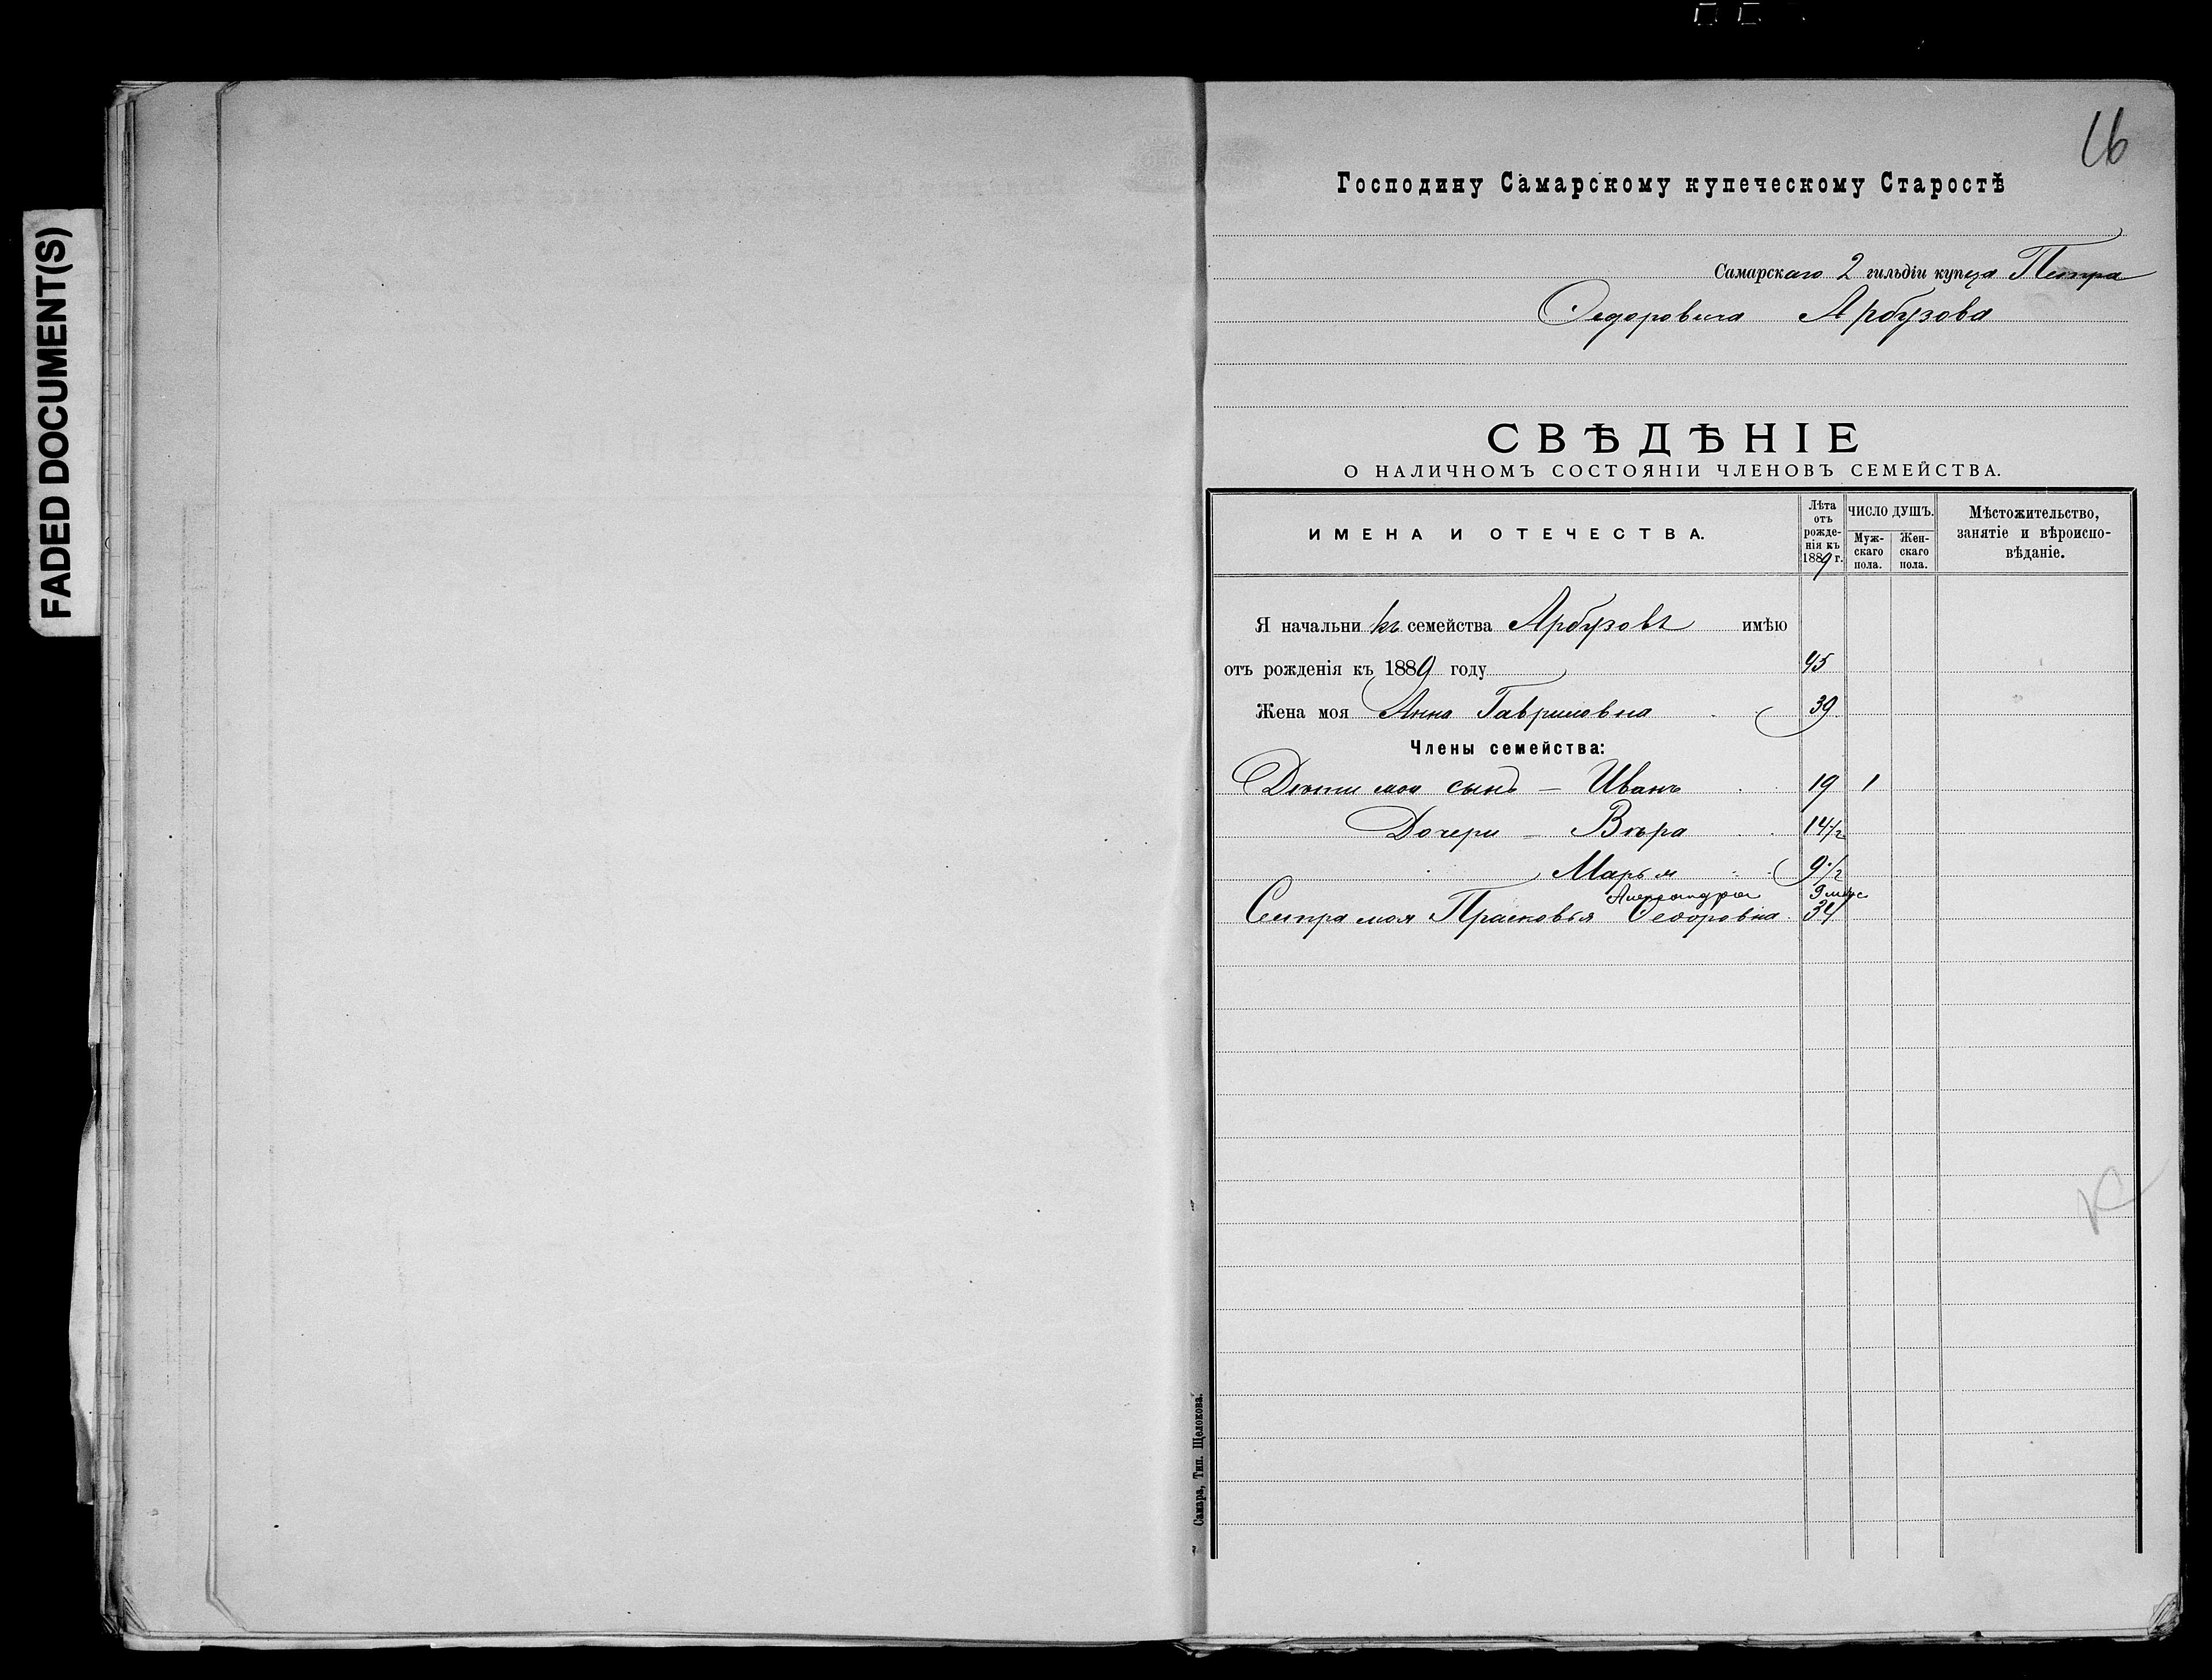 FADED DOCUMENT(S)
16
Господину Самарскому купеческому Старостѣ
Самарскаго 2 гильдіи купца Петра
Ѳедоровича Арбузова
СВѢДѢНІЕ
О НАЛИЧНОМЪ СОСТОЯНІИ ЧЛЕНОВЪ СЕМЕЙСТВА.
ИМЕНА И ОТЕЧЕСТВА.
Лѣта
отъ
рожде-
нія къ
1889 г.
ЧИСЛО ДУШЪ.
Муж-
скаго
пола.
Жен-
скаго
пола.
Мѣстожительство,
занятіе и вѣроиспо-
вѣданіе.
Я начальникъ семейства Арбузовъ имѣю
отъ рожденія къ 1889 году 45
Жена моя Анна Гавриловна 39
Члены семейства:
Дѣти мои сынъ — Иванъ 19 1
Дочери — Вѣра 14 1/2
Марья 9 1/2
Александра 9 мѣс
Сестра моя Прасковья Ѳедоровна 34
К
Самара, Тип. Щелокова.